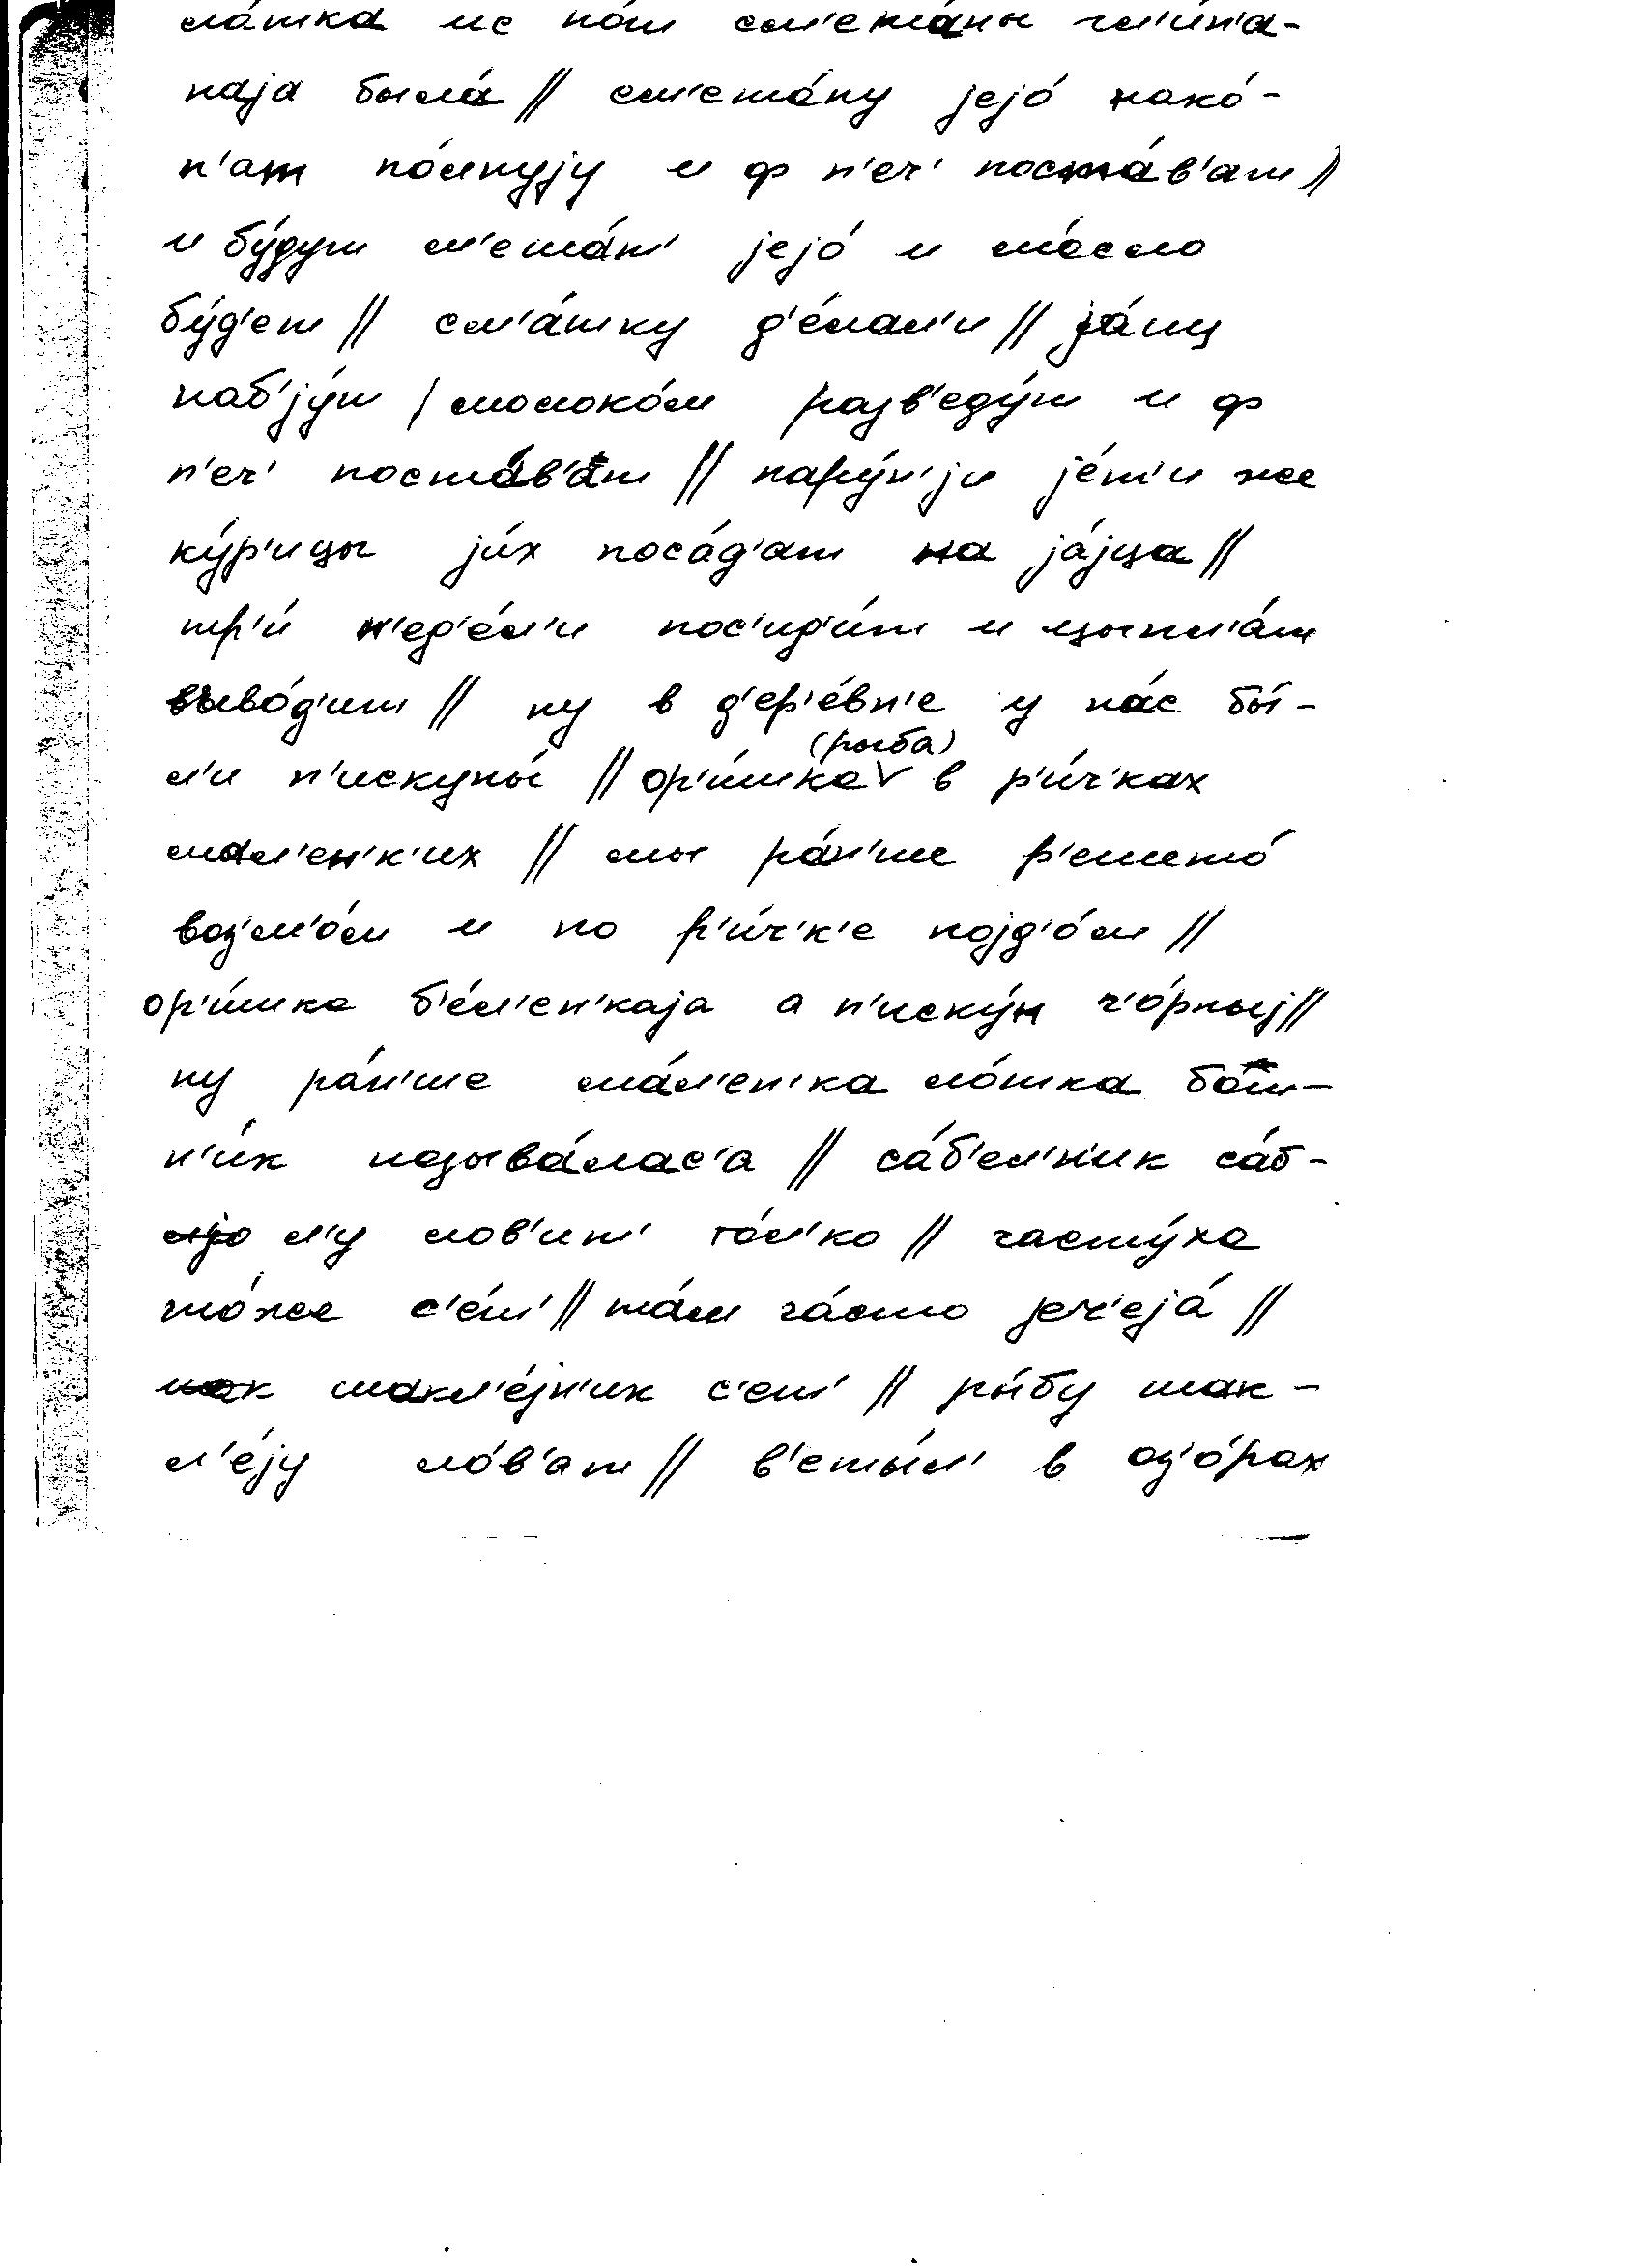 ла́тка ис по́т см'ета́ны гл'и́н'а-
наја была́ // см'ета́ну јејо́ нако́-
п'ат по́лнују и ф п'еч' поста́в'ат //
и бу́дут м'ета́т' јејо́ и ма́сло
бу́д'ет // см'а́тку д'е́лал'и // ја́иц
наб'ју́т / молоко́м разв'еду́т и ф
п'еч' поста́в'ат // пару́н'ји је́т'и же
ку́р'ицы ји́х поса́д'ат на ја́јца //
тр'и́ н'ед'е́л'и пос'ид'и́т и цыпл'а́т
выво́д'ит // ну в д'ер'е́вн'е у на́с бы́-
л'и п'искуны́ // ор'и́шка (рыба) в р'и́ч'ках
мал'ен'к'их // мы ра́н'ше р'ешето́
воз'м'о́м и по р'и́ч'к'е појд'о́м //
ор'и́шка б'е́л'ен'каја а п'иску́н ч'о́рныј //
ну ра́н'ше ма́л'ен'ка ло́тка бо́т-
н'и́к называ́лас'а // са́б'ел'н'ик са́б-
л'у лов'ит' то́л'ко // часту́ха
то́же с'е́т' // та́м ча́сто јеч'еја́ //
макл'е́јн'ик с'ет' // ры́бу мак-
л'е́ју ло́в'ат // в'еты́л' в оз'о́рах